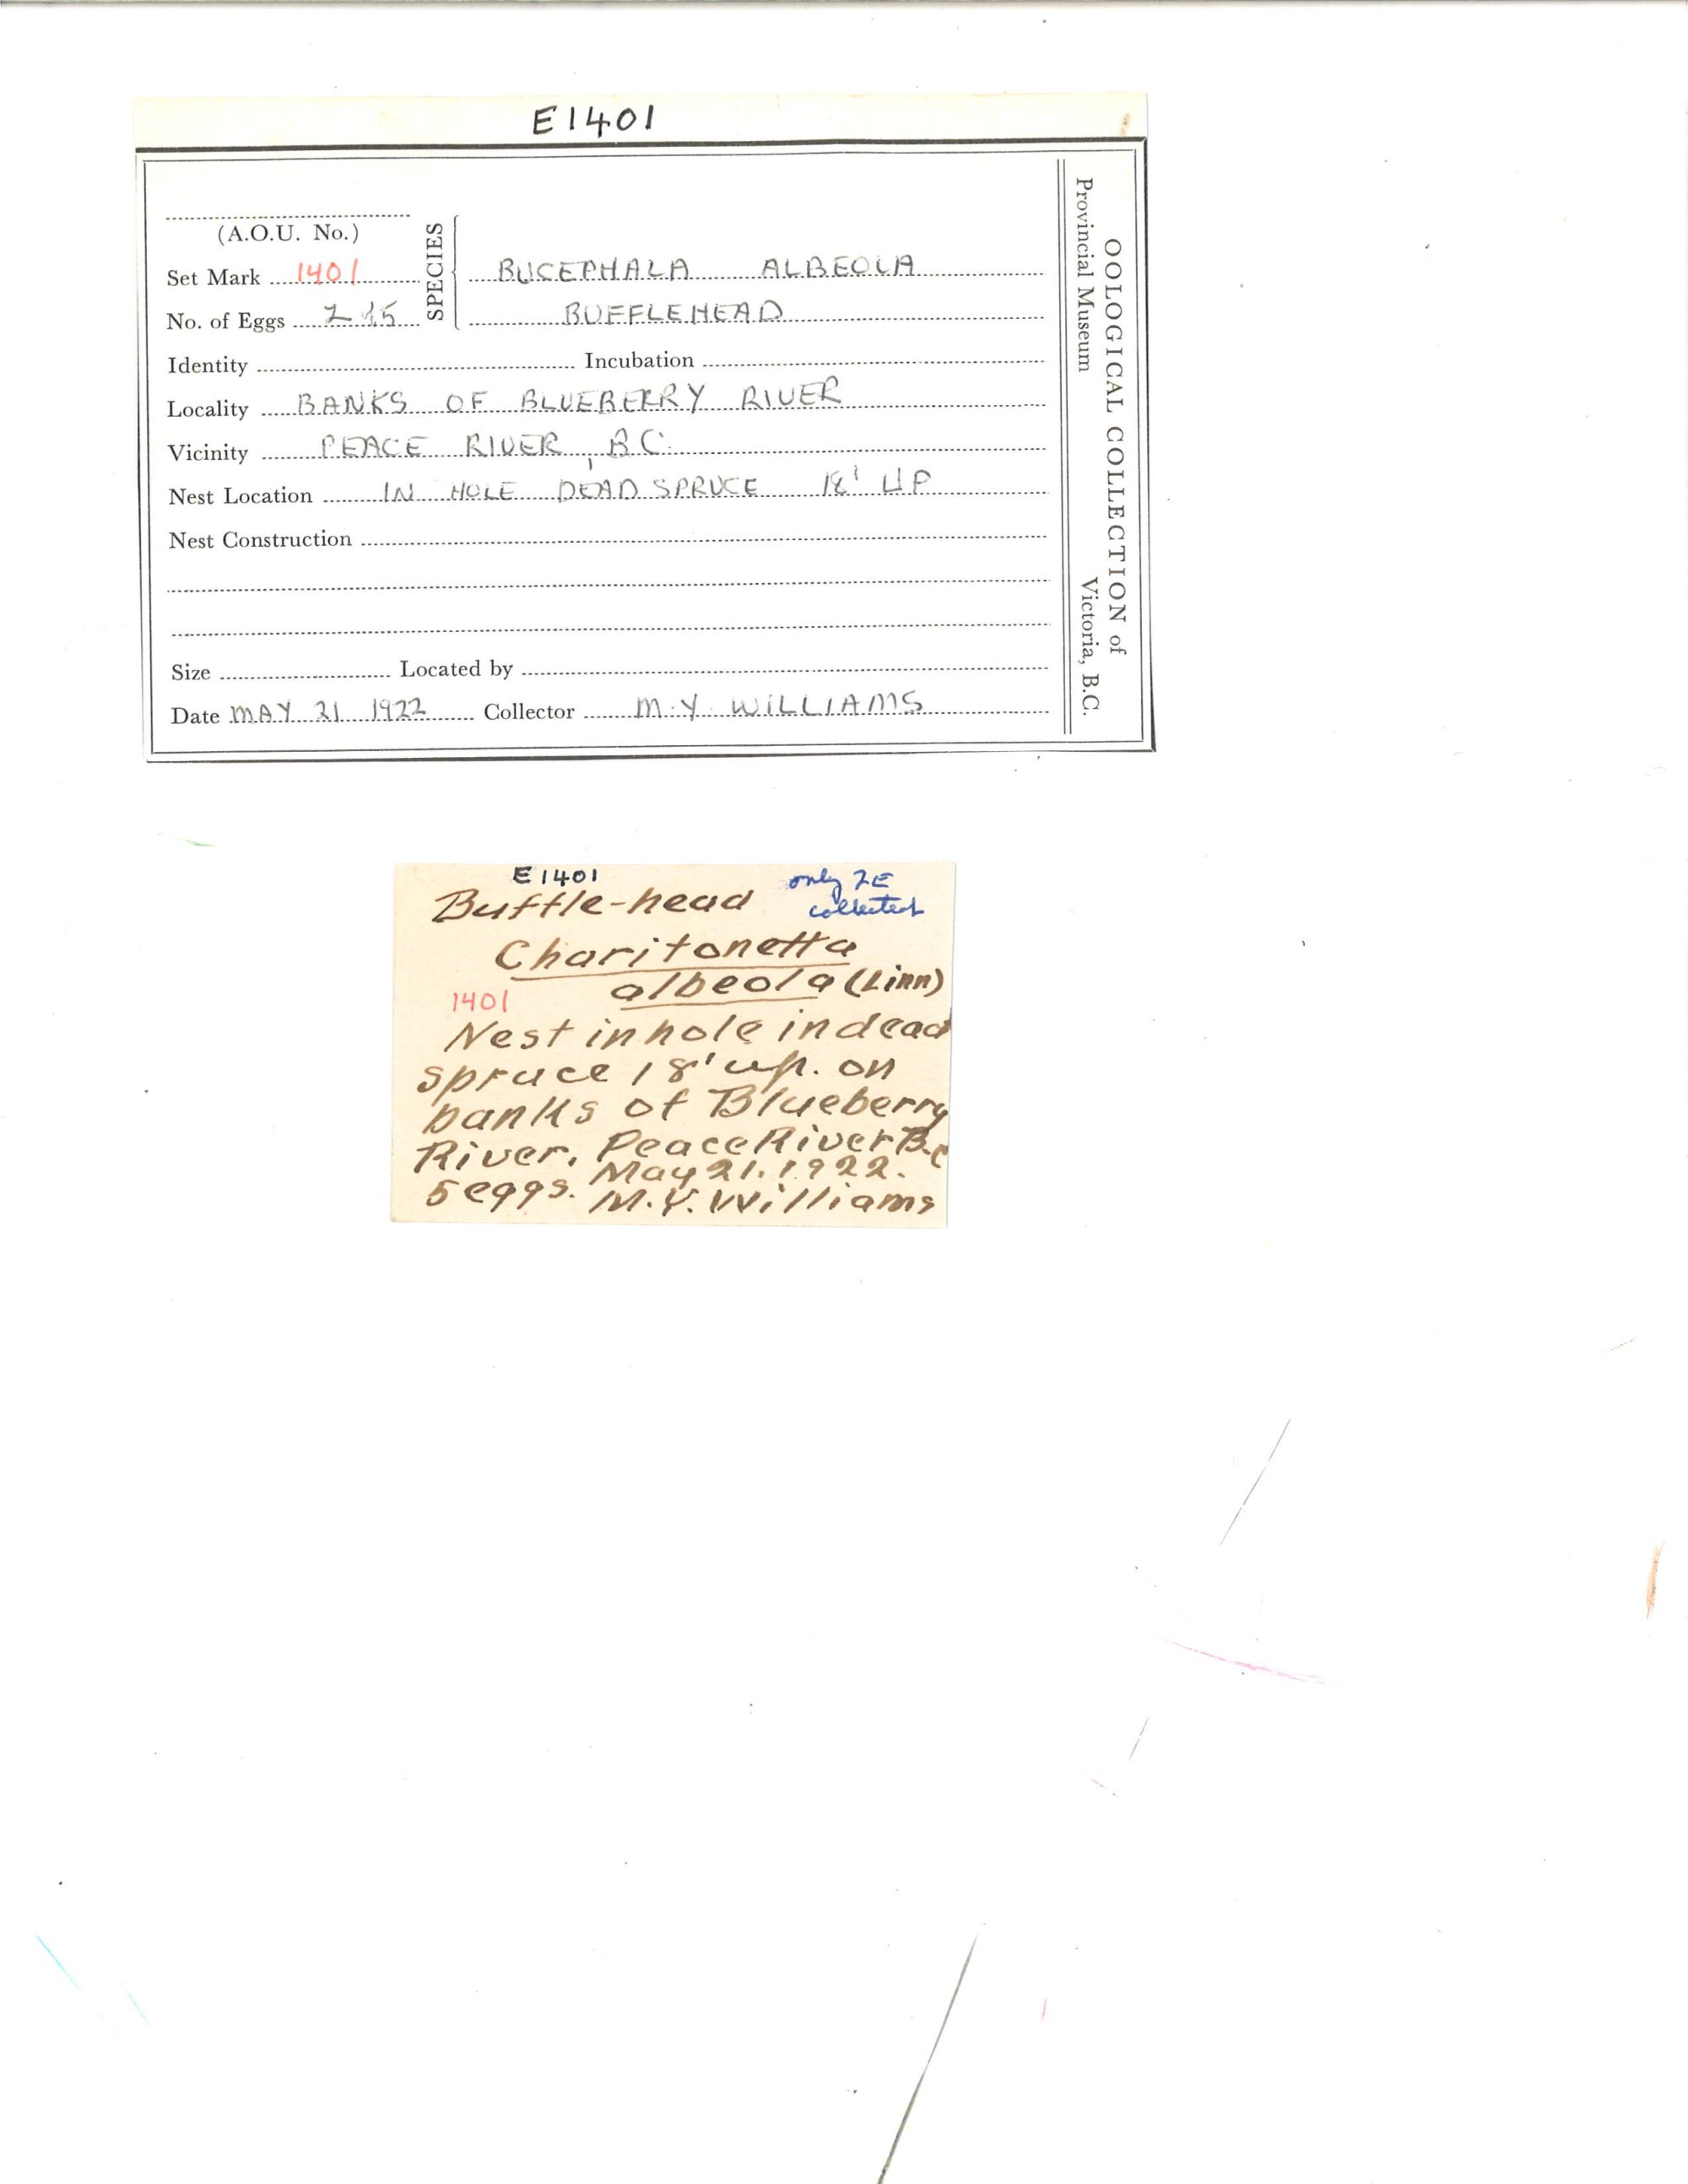 E1401
(A.O.U. No.)
SPECIES
Set Mark 1401
BUCEPHALA ALBEOLA
No. of Eggs 2/5
BUFFLEHEAD
Identity Incubation
Locality BANKS OF BLUEBERRY RIVER
Vicinity PEACE RIVER, B.C.
Nest Location IN HOLE DEAD SPRUCE 18' UP
Nest Construction
Size Located by
Date MAY 21 1922 Collector M.Y. WILLIAMS
OOLOGICAL COLLECTION of
Provincial Museum Victoria, B.C.
E1401
only 2E
collected
Buffle-head
Charitonetta
albeola (Linn)
1401
Nest in hole in dead
spruce 18' up. on
banks of Blueberry
River, Peace River B.C
May 21. 1922.
5 eggs. M.Y. Williams